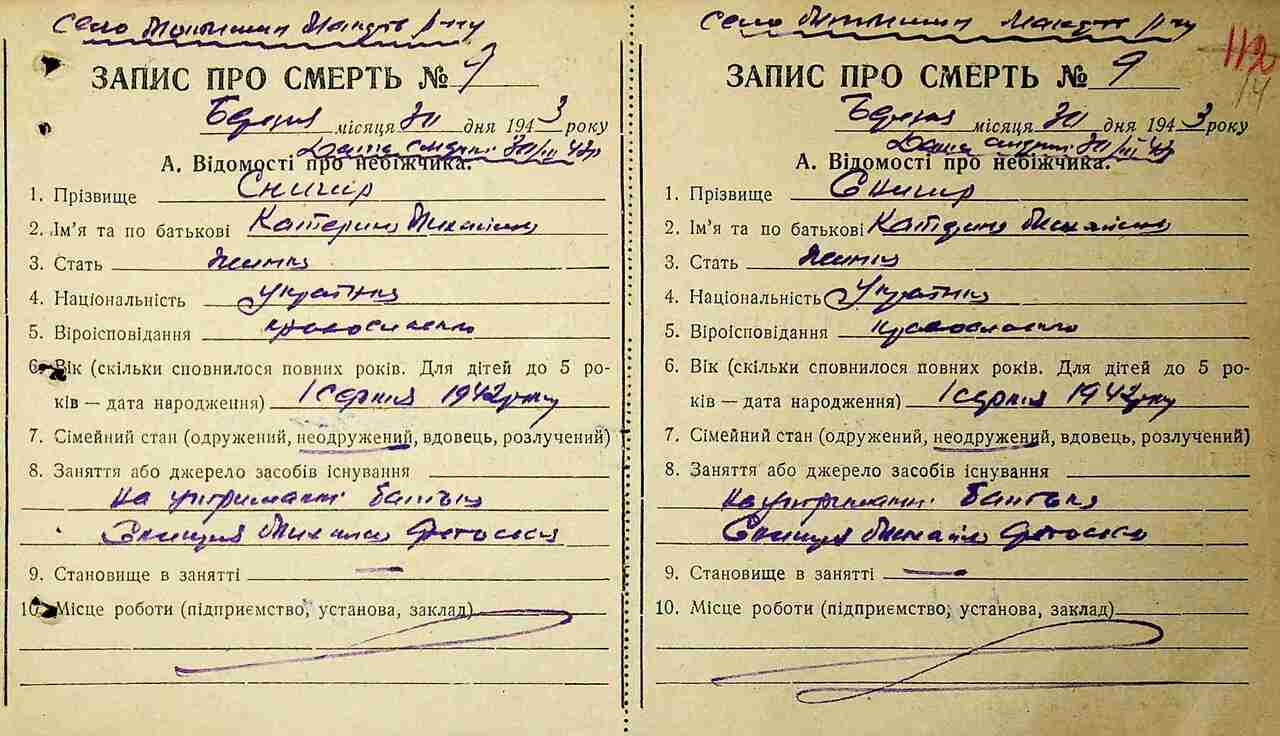 село Мотижин Макарів р-ну
ЗАПИС ПРО СМЕРТЬ № 9
Березня місяця 30 дня 1943 року
Дата смерті 30/III 43 р
А. Відомості про небіжчика.
1. Прізвище Снигир
2. Ім’я та по батькові Катерина Михайлівна
3. Стать жінка
4. Національність Українка
5. Віроісповідання православна
6. Вік (скільки сповнилося повних років. Для дітей до 5 ро-
ків — дата народження) 1 серпня 1942 року
7. Сімейний стан (одружений, неодружений, вдовець, розлучений)
8. Заняття або джерело засобів існування
на утриманні батька
Снигиря Михайла
9. Становище в занятті —
10. Місце роботи (підприємство, установа, заклад)
село Мотижин Макарів р-ну
112
ЗАПИС ПРО СМЕРТЬ № 9
Березня місяця 30 дня 1943 року
Дата смерті 30/III 43
А. Відомості про небіжчика.
1. Прізвище Снигир
2. Ім’я та по батькові Катерина Михайлівна
3. Стать жінка
4. Національність Українка
5. Віроісповідання православна
6. Вік (скільки сповнилося повних років. Для дітей до 5 ро-
ків — дата народження) 1 серпня 1942 року
7. Сімейний стан (одружений, неодружений, вдовець, розлучений)
8. Заняття або джерело засобів існування
на утриманні батька
Снигиря Михайла
9. Становище в занятті —
10. Місце роботи (підприємство, установа, заклад)